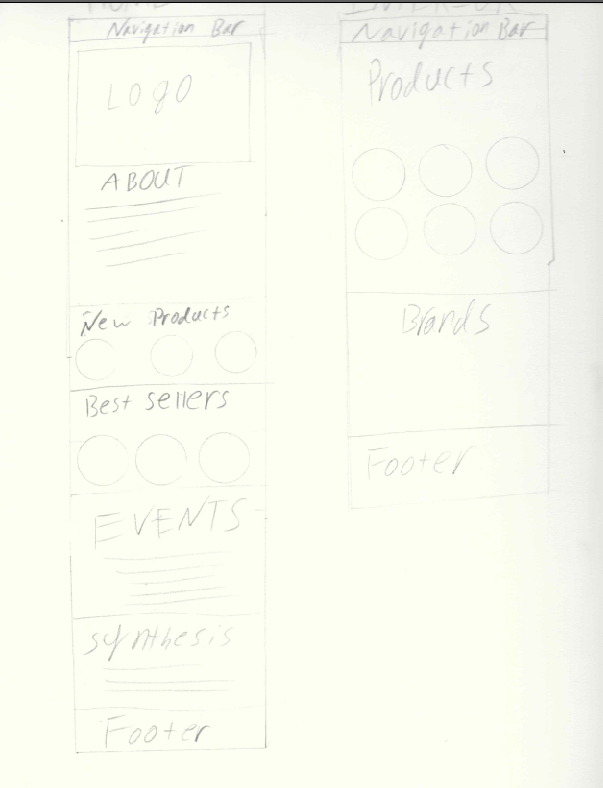 HOME
Navigation Bar
Logo
ABOUT
New Products
Best sellers
EVENTS
synthesis
Footer
INTERIOR
Navigation Bar
Products
Brands
Footer